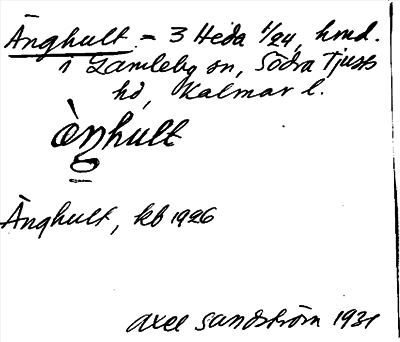 Änghult – 3 Heda 1/24, hmd.
i Gamleby sn, Södra Tjusts
hd, Kalmar l.
ònhult
Änghult, kb 1926
Axel Sandström 1931